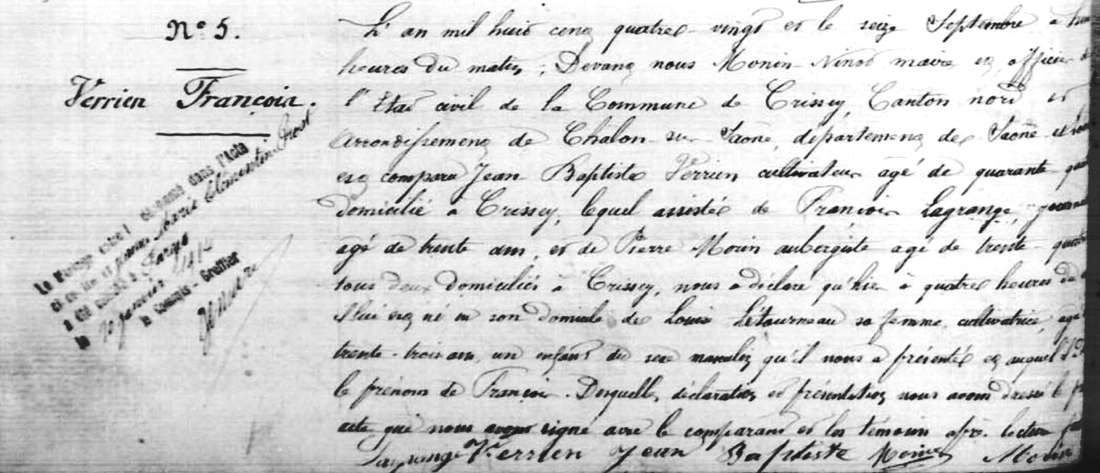 N° 5.
Verrien François.
Le Mariage entre l dénommé dans l'Acte
ci contre et Marie Clémentine
a été célébré à
le Janvier
le Commis-Greffier
L'an mil huit cent quatre-vingt et le seize Septembre à
heures du matin ; Devant nous Monin Ninot maire et officier de
l'Etat civil de la Commune de Crissey Canton nord et
arrondissement de Chalon sur Saône, département de Saône et
est comparu Jean Baptiste Verrien cultivateur âgé de quarante
domicilié à Crissey, lequel assisté de François Lagrange,
agé de trente ans, et de Pierre Morin aubergiste agé de trente-quatre
tous deux domiciliés à Crissey, nous a déclaré qu'hier à quatre heures du
est né en son domicile de Louise Letourneau sa femme, cultivatrice, agée
trente-trois ans, un enfant du sexe masculin qu'il nous a présenté et auquel il
le prénom de François. Desquelles déclaration et présentation nous avons dressé le
acte que nous avons signé avec le comparant et les témoins après lecture
Lagrange Verrien Jean Baptiste Monin Morin